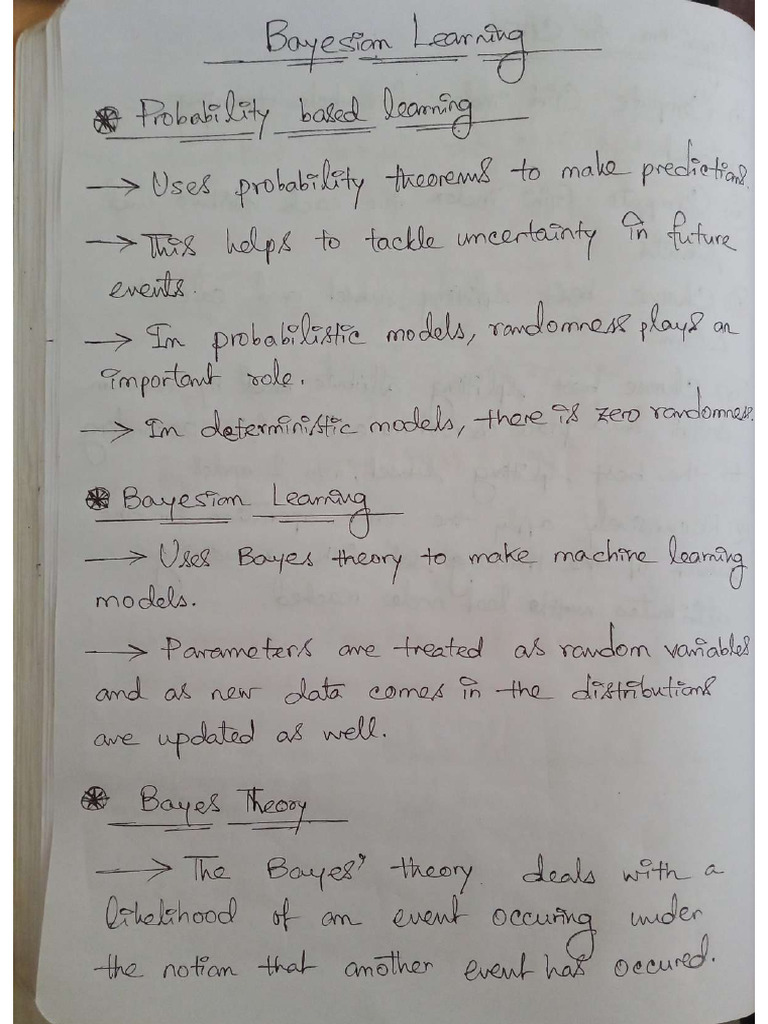 Bayesian Learning
Probability based learning
→ Uses probability theorems to make predictions.
→ This helps to tackle uncertainty in future
events.
→ In probabilistic models, randomness plays an
important role.
→ In deterministic models, there is zero randomness.
Bayesian Learning
→ Uses Bayes theory to make machine learning
models.
→ Parameters are treated as random variables
and as new data comes in the distributions
are updated as well.
Bayes Theory
→ The Bayes' theory deals with a
likelihood of an event occuring under
the notion that another event has occured.